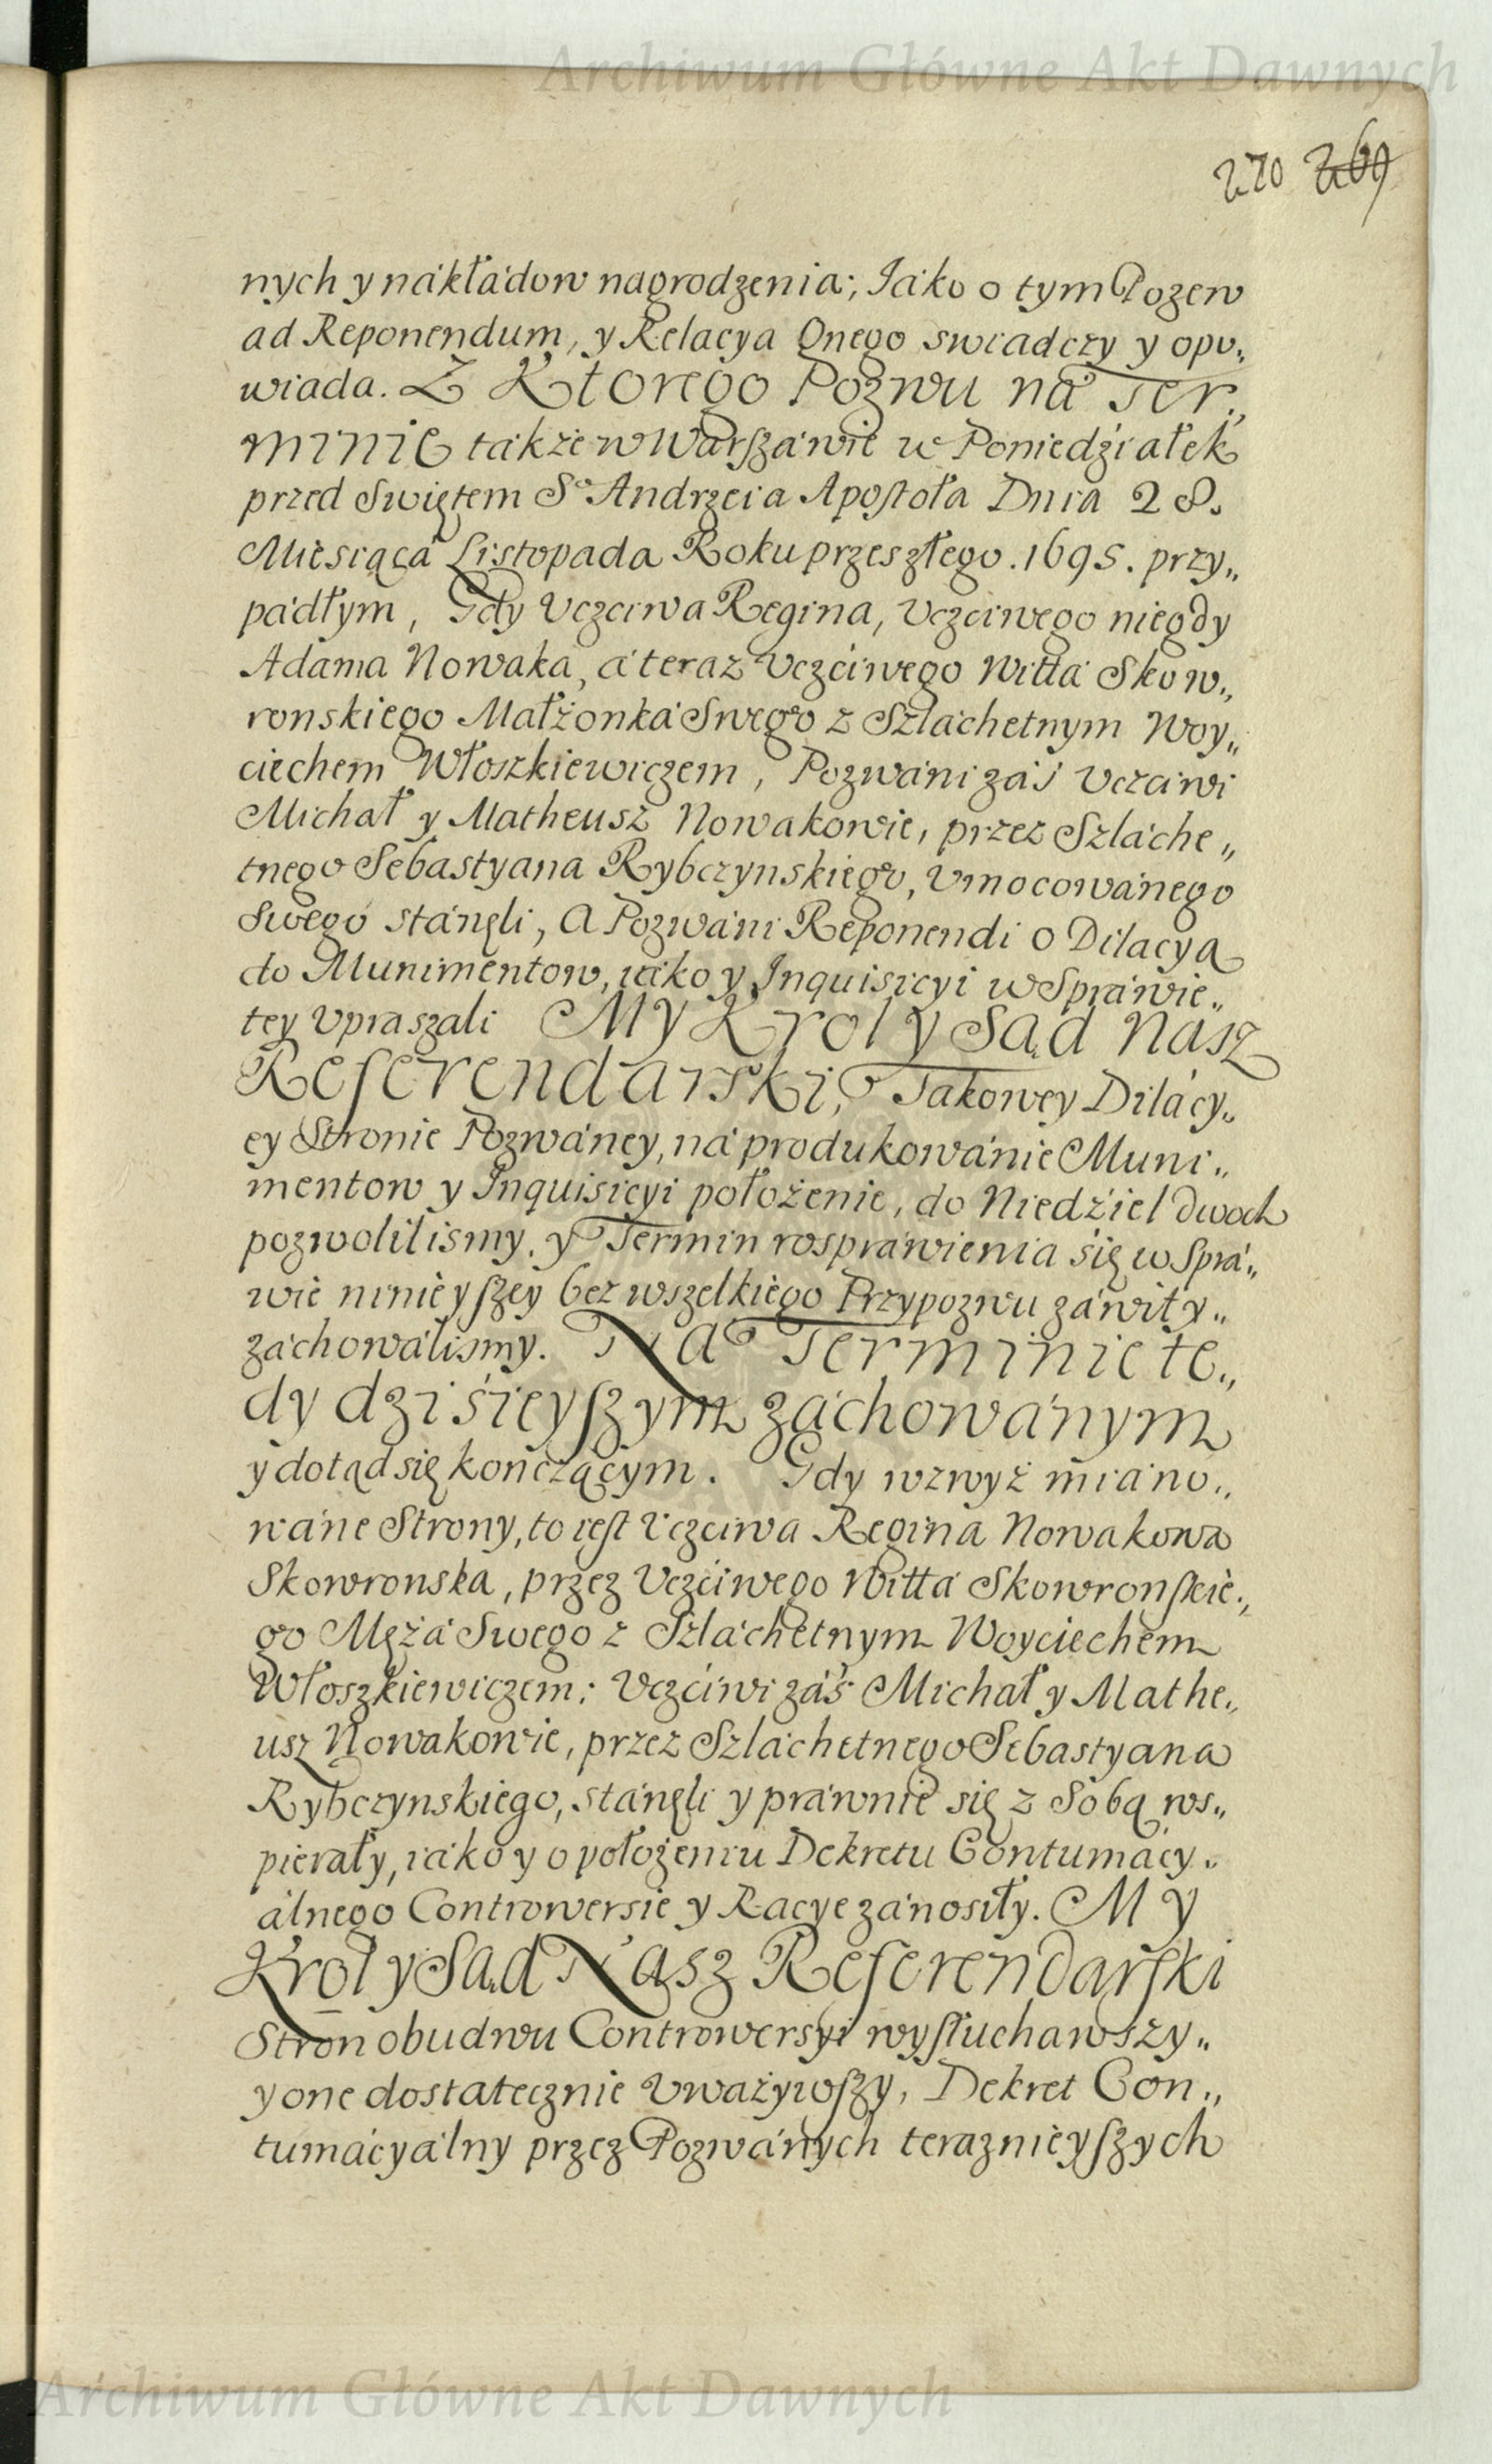 Archiwum Główne Akt Dawnych
270 269
nych y nákłádow nagrodzenia; Iáko o tym Pozew
ad Reponendum, y Relacya Onego swiadczy y opo„
wiada. Z Ktorego Pozwu ná Ter„
minie tákże w Warszáwie w Poniedźiałek
przed Swiętem So Andrzeia Apostoła Dnia 28.
Miesiącá Listopada Roku przeszłego. 1695. przy„
pádłym, Gdy Vczciwa Regina, Vczciwego niegdy
Adama Nowaka, á teraz Vczćiwego Wittá Skow„
ronskiego Małżonká Swego z Szláchetnym Woy„
ciechem Włoszkiewiczem, Pozwáni záś Vczciwi
Michał y Matheusz Nowakowie, przez Szláche„
tnego Sebastyana Rybczynskiego, Vmocowánego
Swego stánęli, A Pozwáni Reponendi o Dilacya
do Munimentow, iáko y Inquisicyi w Spráwie„
tey Vpraszali My Krol y Sąd Nász
Referendarski, Takowey Dilácy„
ey Stronie Pozwáney, ná produkowánie Muni„
mentow y Inquisicyi położenie, do Niedźiel dwoch
pozwolilismy, y Termin rospráwienia się w Sprá„
wie ninieyszey bez wszelkiego Przypozwu záwity„
záchowálismy. Na Terminie te„
dy dziśieyszym záchowánym
y dotąd się kończącym. Gdy wzwyż miáno„
wáne Strony, to iest Vczciwa Regina Nowakowa
Skowronska, przez Vczćiwego Wittá Skowronskie„
go Mężá Swego z Szláchetnym Woyciechem
Włoszkiewiczem: Vczćiwi záś Michał y Mathe„
usz Nowakowie, przez Szláchetnego Sebastyana
Rybczynskiego, stánęli y práwnie się z Sobą ws„
pierały, iáko y o położeniu Dekretu Contumácy„
álnego Controwersie y Racye zánosiły. My
Krol y Sąd Nasz Referendarski
Stron obudwu Controwersyi wysłuchawszy„
y one dostatecznie Vważywszy, Dekret Con„
tumácyálny przez Pozwánych teraznieyszych
Archiwum Główne Akt Dawnych